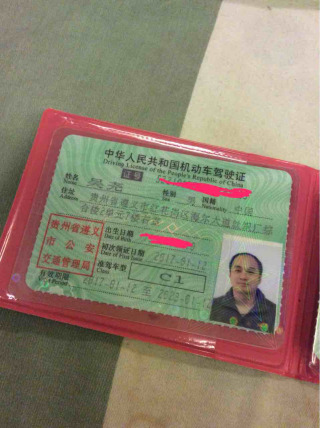 中华人民共和国机动车驾驶证
Driving License of the People's Republic of China
证号
姓名
Name
吴尧
性别
男
国籍
Nationality
中国
住址
Address
贵州省遵义
贵州省遵义
市公安
交通管理局
出生日期
Date of Birth
初次领证日期
Date of First Issue
2017-01-12
准驾车型
Class
C1
有效期限
Valid Period
2017-01-12 至 2023-01-12